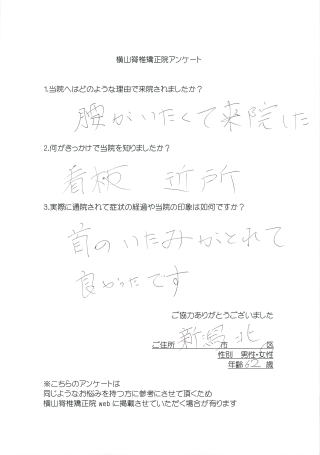 横山脊椎矯正院アンケート
1.当院へはどのような理由で来院されましたか？
腰がいたくて来院した
2.何がきっかけで当院を知りましたか？
看板 近所
3.実際に通院されて症状の経過や当院の印象は如何ですか？
首のいたみがとれて
良かったです
ご協力ありがとうございました
ご住所 新潟 市 北 区
性別 男性・女性
年齢 62 歳
※こちらのアンケートは
同じようなお悩みを持つ方に参考にさせて頂くため
横山脊椎矯正院 web に掲載させていただく場合が有ります